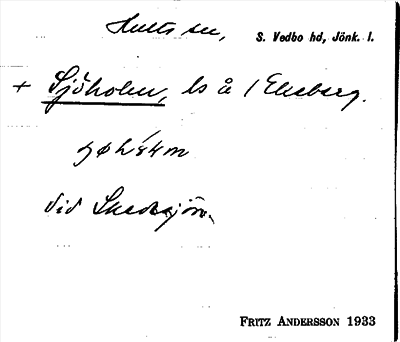 Hults sn, S. Vedbo hd, Jönk. l.
+ Sjöholm, ls å / Ekeberg.
Vid Skedesjön.
FRITZ ANDERSSON 1933